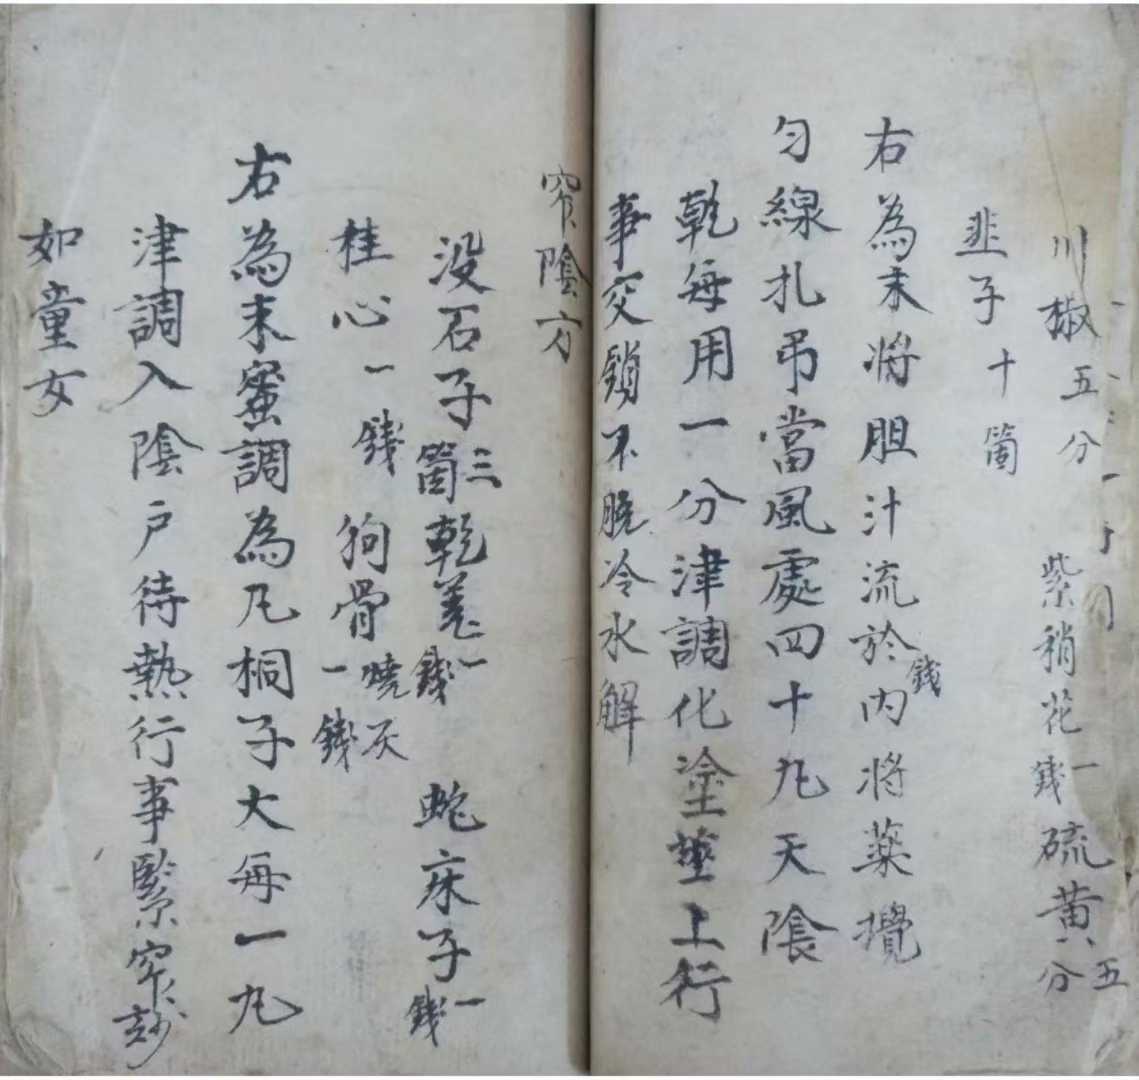 川椒五分 紫稍花一錢 硫黄五分
韭子十箇
右為末將胆汁流於内將藥攪
匀線扎弔當風處四十九天陰
乾每用一分津調化塗莖上行
事交鎖不脱冷水解
窄陰方
没石子三箇 乾姜一錢 蛇床子一錢
桂心一錢 狗骨燒灰一錢
右為末蜜調為凡桐子大每一丸
津調入陰户待熱行事緊窄妙
如童女